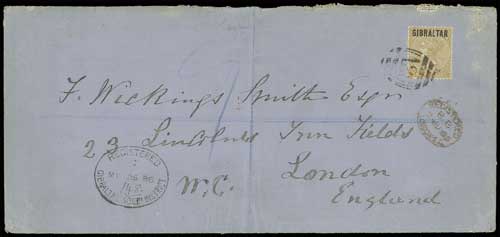 GIBRALTAR
F. Wickings Smith Esqr
23 Lincolns Inn Fields
London
W.C.
England
REGISTERED